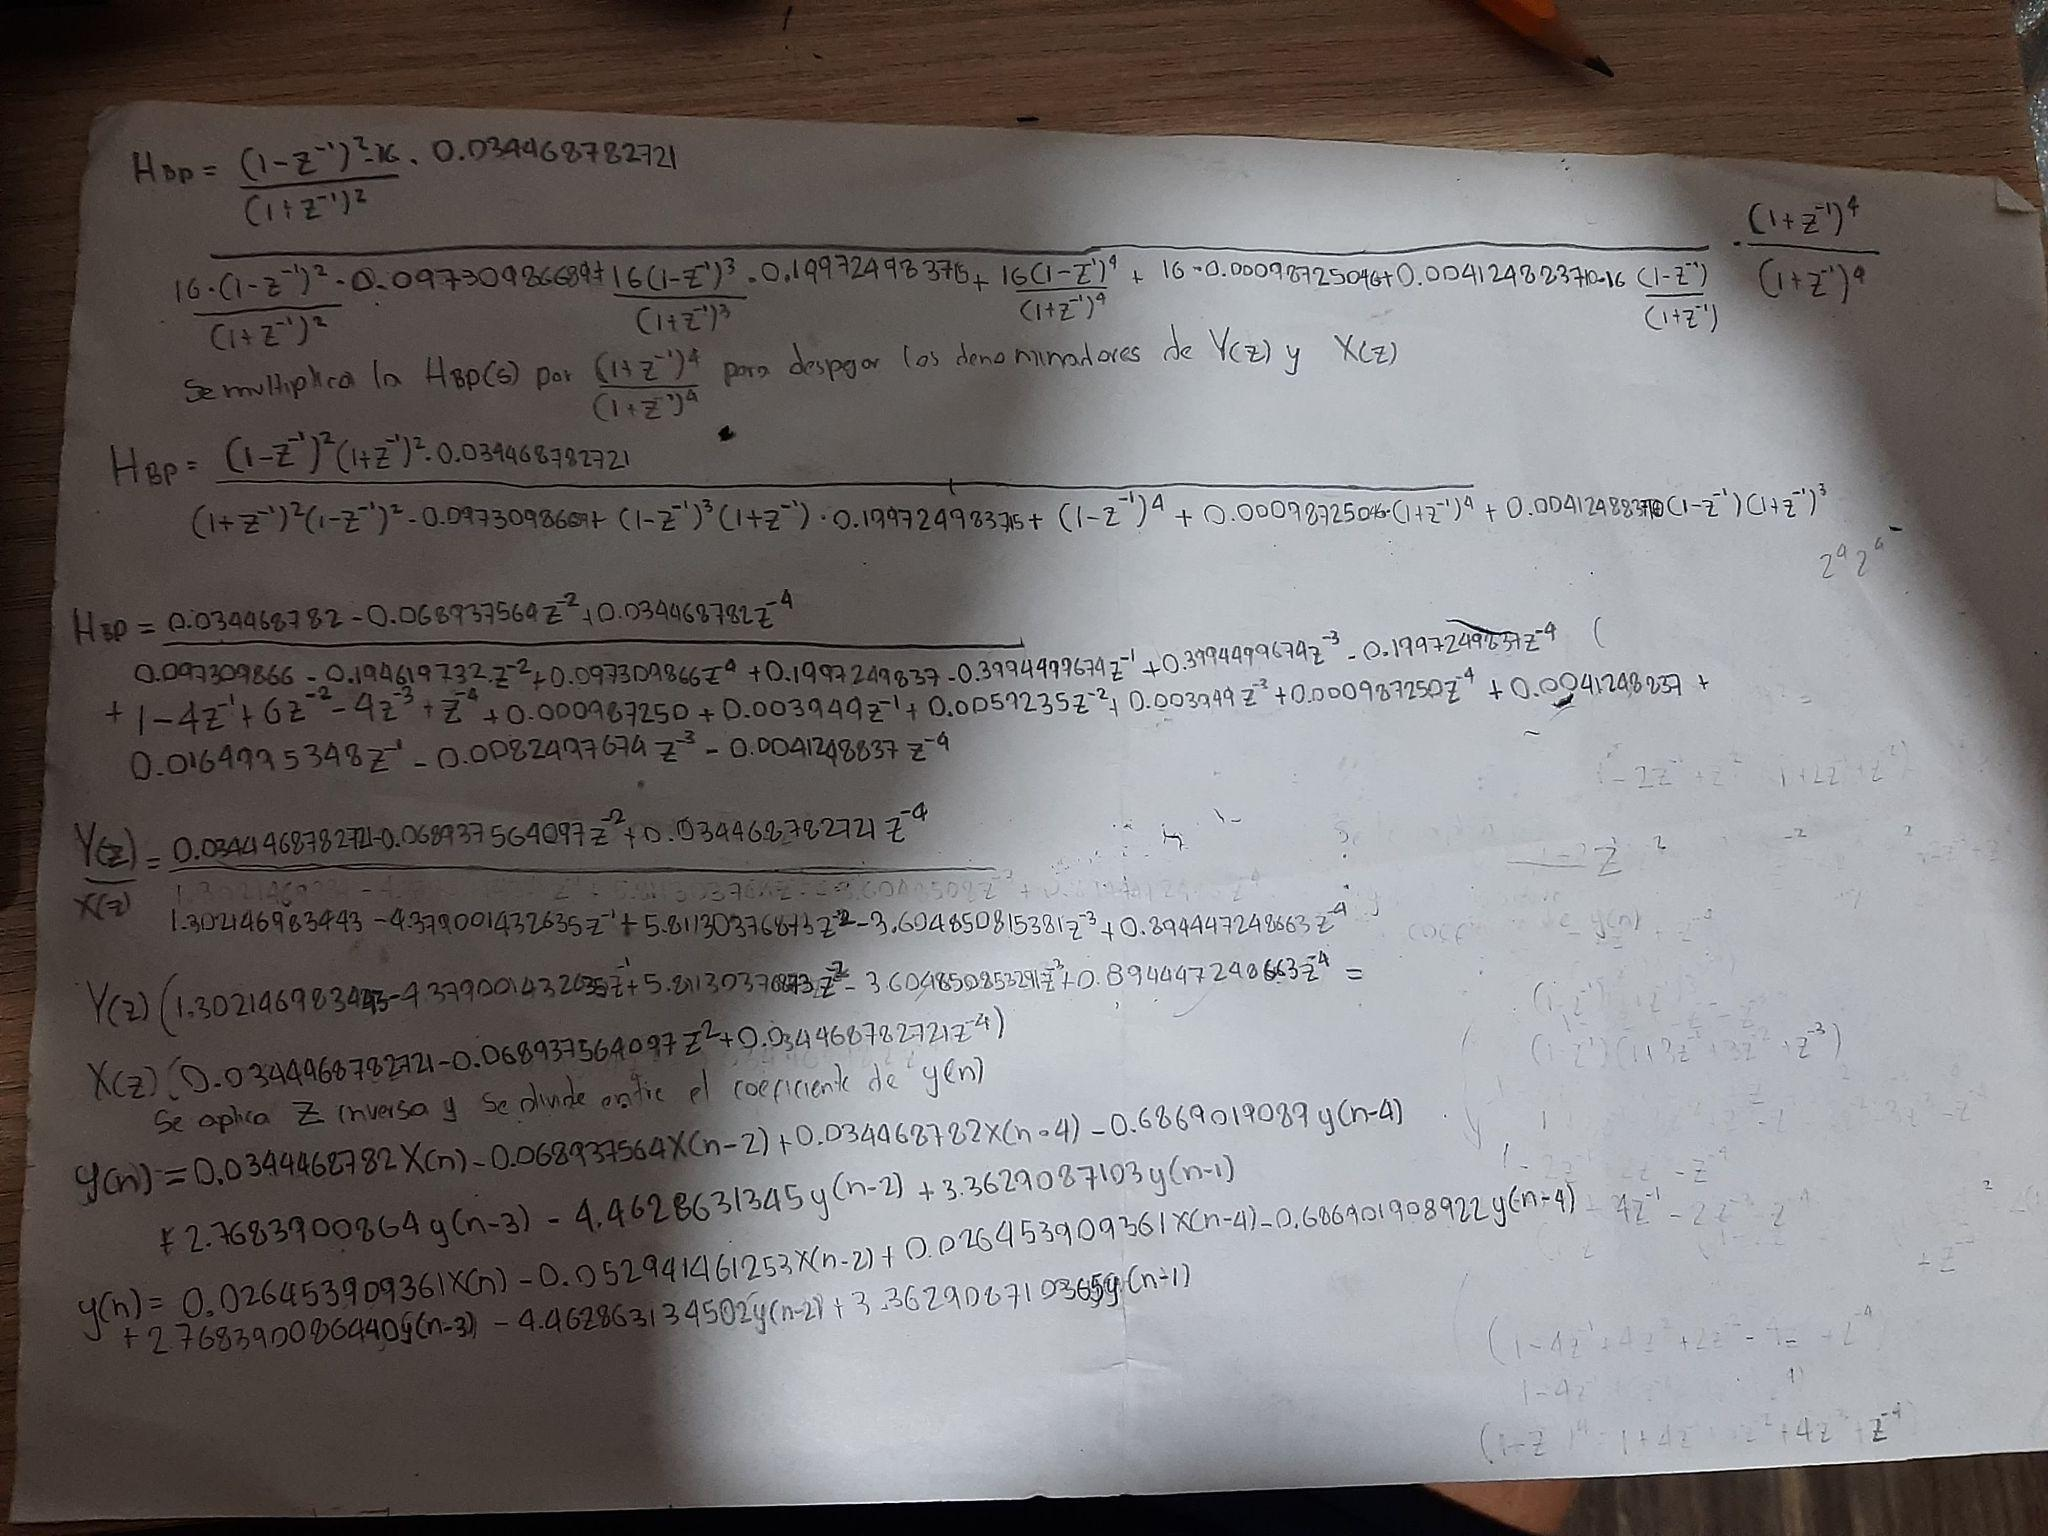 H_BP = (1-z⁻¹)²·16 · 0.034468782721
(1+z⁻¹)²
(1+z⁻¹)⁴
16·(1-z⁻¹)² · 0.09730986689+ 16(1-z⁻¹)³ · 0.199724983715+ 16(1-z⁻¹)⁴ + 16·0.00098725046+0.004124823710·16 (1-z⁻¹) (1+z⁻¹)⁴
(1+z⁻¹)² (1+z⁻¹)³ (1+z⁻¹)⁴ (1+z⁻¹)
Se multiplica la HBP(s) por (1+z⁻¹)⁴ para despejar los denominadores de Y(z) y X(z)
(1+z⁻¹)⁴
H_BP = (1-z⁻¹)²(1+z⁻¹)²·0.034468782721
(1+z⁻¹)²(1-z⁻¹)²·0.0973098669+ (1-z⁻¹)³(1+z⁻¹)·0.199724983715+ (1-z⁻¹)⁴ + 0.00098725046·(1+z⁻¹)⁴ + 0.00412488370(1-z⁻¹)(1+z⁻¹)³
H_BP = 0.034468782-0.068937564z⁻²+0.034468782z⁻⁴
0.097309866-0.194619732z⁻²+0.097309866z⁴+0.1997249837-0.3994499674z⁻¹+0.3994499674z⁻³-0.1997249837z⁻⁴
+1-4z⁻¹+6z⁻²-4z⁻³+z⁻⁴+0.000987250+0.003949z⁻¹+0.0059235z⁻²+0.003949z⁻³+0.000987250z⁻⁴+0.0041248837+
0.0164995348z⁻¹-0.0082497674z⁻³-0.0041248837z⁻⁴
Y(z) = 0.0344468782721-0.068937564097z⁻²+0.034468782721z⁻⁴
X(z)
1.302146983443-4.379001432635z⁻¹+5.81130376873z⁻²-3.604850815381z⁻³+0.894447248663z⁻⁴
Y(z)(1.302146983443-4.379001432635z⁻¹+5.81130376873z⁻²-3.604850853291z⁻³+0.894447248663z⁻⁴ =
X(z)(0.0344468782721-0.068937564097z²+0.034468782721z⁻⁴)
Se aplica Z inversa y se divide entre el coeficiente de y(n)
y(n)=0.0344468782X(n)-0.068937564X(n-2)+0.034468782X(n-4)-0.6869019089y(n-4)
+2.7683900864y(n-3)-4.4628631345y(n-2)+3.3629087103y(n-1)
y(n)=0.026453909361X(n)-0.052941461253X(n-2)+0.026453909361X(n-4)-0.686901908922y(n-4)
+2.768390086440y(n-3)-4.462863134502y(n-2)+3.362908710365y(n-1)